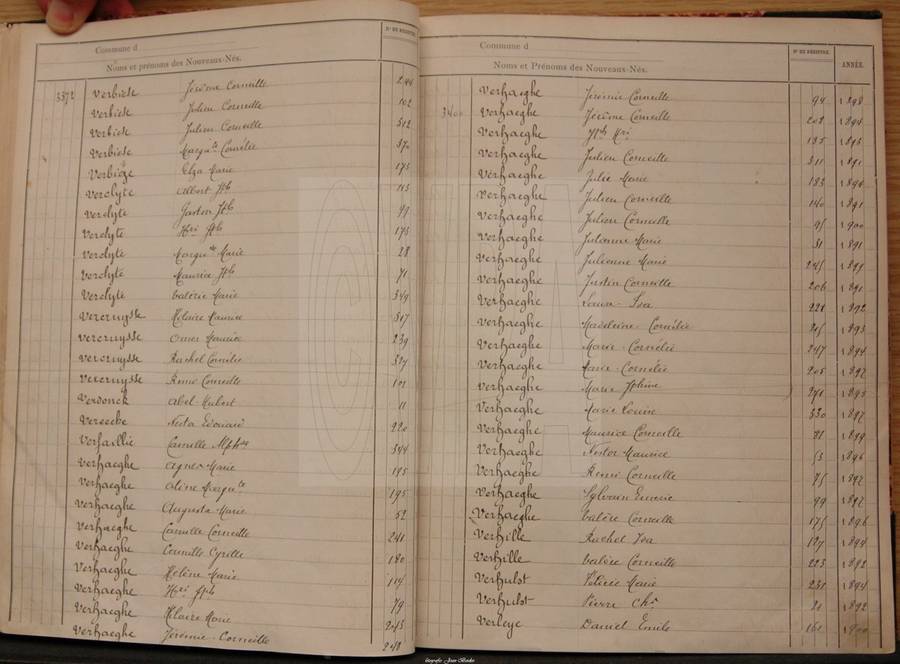 Commune d
Noms et prénoms des Nouveaux-Nés.
N° DE REGISTRE
3372 Verbiese Jérôme Corneille 244
Verbiese Julien Corneille 102
Verbiese Julien Corneille 312
Verbiese Margte Cornélie 370
Verbièze Elza Marie 175
Verclyte Albert Jph 113
Verclyte Gaston Jph 49
Verclyte Hri Jph 175
Verclyte Margte Marie 28
Verclyte Maurice Jph 71
Verclyte Valérie Marie 349
Vercruysse Hilaire Maurice 317
Vercruysse Omer Maurice 239
Vercruysse Rachel Cornélie 327
Vercruysse Remi Corneille 101
Verdonck Abel Hubert 11
Vereecke Edouard 220
Verfaillie Camille Alphse 344
Verhaeghe Agnès Marie 195
Verhaeghe Aline Margte 195
Verhaeghe Augusta Marie 52
Verhaeghe Camille Corneille 241
Verhaeghe Corneille Cyrille 180
Verhaeghe Hélène Marie 114
Verhaeghe Hri Jph 79
Verhaeghe Hilaire Marie 243
Verhaeghe Jérémie Corneille 248
Commune d
Noms et Prénoms des Nouveaux-Nés.
N° DE REGISTRE
ANNÉE.
Verhaeghe Jérémie Corneille 94 1898
3400 Verhaeghe Jérôme Corneille 202 1894
Verhaeghe Jph Hri 135 1893
Verhaeghe Julien Corneille 311 1891
Verhaeghe Julie Marie 183 1894
Verhaeghe Julien Corneille 140 1891
Verhaeghe Julien Corneille 95 1900
Verhaeghe Julienne Marie 31 1891
Verhaeghe Julienne Marie 245 1899
Verhaeghe Justin Corneille 206 1891
Verhaeghe Louis Isa 221 1892
Verhaeghe Madeleine Cornélie 215 1893
Verhaeghe Marie Cornélie 247 1894
Verhaeghe Marie Cornélie 205 1897
Verhaeghe Marie Jphine 291 1895
Verhaeghe Marie Louise 330 1897
Verhaeghe Maurice Corneille 81 1899
Verhaeghe Nestor Maurice 53 1896
Verhaeghe Remi Corneille 75 1892
Verhaeghe Sylvain 99 1897
Verhaeghe Valère Corneille 175 1896
Verhille Rachel Isa 127 1894
Verhille Valère Corneille 223 1892
Verhulst Valérie Marie 231 1894
Verhulst Pierre Chs 21 1892
Verleye Daniel Emile 161 1900